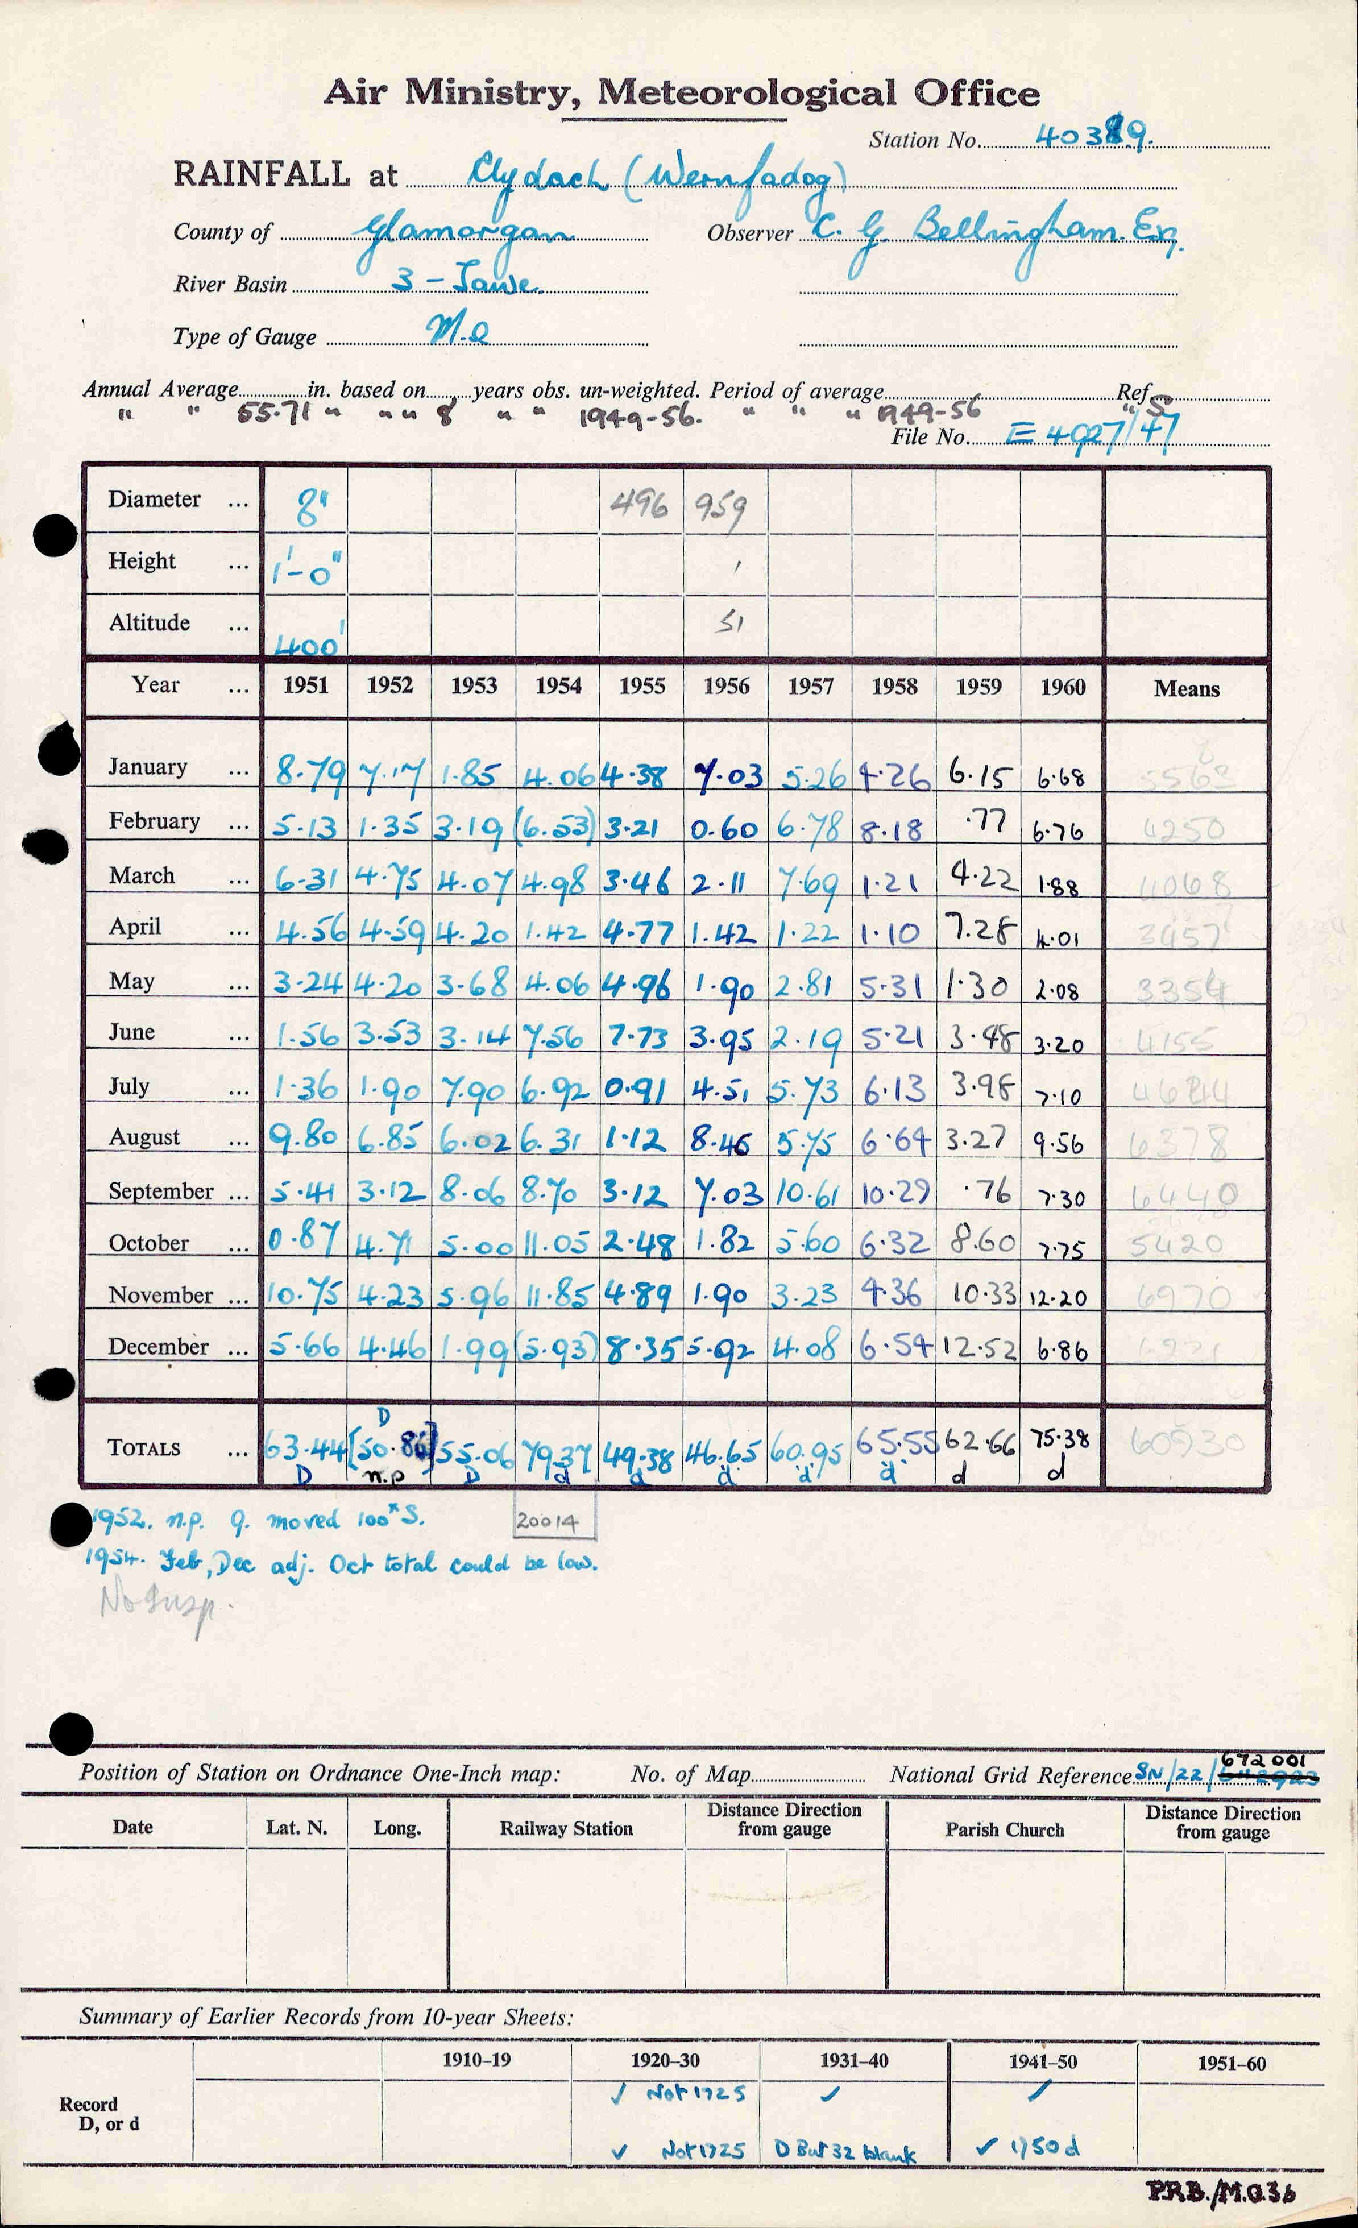 Air Ministry, Meteorological Office
Station No. 40389.
RAINFALL at Clydach (Wernfadog)
County of Glamorgan Observer C. G. Bellingham. Esq.
River Basin 3 - Tawe.
Type of Gauge M.O
Annual Average in. based on years obs. un-weighted. Period of average Ref
" " 55.71 " " " 8 " " 1949-56. " " " 1949-56 " S
File No. E 4927/47
Diameter ... 8" 496 959
Height ... 1'-0"
Altitude ... 400' 51
Year ... 1951 1952 1953 1954 1955 1956 1957 1958 1959 1960 Means
January ... 8.79 7.17 1.85 4.06 4.38 7.03 5.26 4.26 6.15 6.68 5563
February ... 5.13 1.35 3.19 (6.53) 3.21 0.60 6.78 8.18 .77 6.76 4250
March ... 6.31 4.75 4.07 4.98 3.46 2.11 7.69 1.21 4.22 1.88 4068
April ... 4.56 4.59 4.20 1.42 4.77 1.42 1.22 1.10 7.28 4.01 3457
May ... 3.24 4.20 3.68 4.06 4.96 1.90 2.81 5.31 1.30 2.08 3354
June ... 1.56 3.53 3.14 7.56 2.73 3.95 2.19 5.21 3.48 3.20 4155
July ... 1.36 1.90 7.90 6.92 0.91 4.51 5.73 6.13 3.98 7.10 4644
August ... 9.80 6.85 6.02 6.31 1.12 8.46 5.75 6.64 3.27 9.56 6378
September ... 5.41 3.12 8.06 8.70 3.12 7.03 10.61 10.29 .76 7.30 6440
October ... 0.87 4.71 5.00 11.05 2.48 1.82 5.60 6.32 8.60 7.75 5420
November ... 10.75 4.23 5.96 11.85 4.89 1.90 3.23 4.36 10.33 12.20 6970
December ... 5.66 4.46 1.99 (5.93) 8.35 5.92 4.08 6.54 12.52 6.86
D
TOTALS ... 63.44 [50.86] 55.06 79.37 49.38 46.65 60.95 65.55 62.66 75.38 60930
D n.p D d d d d d d d
1952. n.p. g. moved 100x S. 20014
1954. Feb, Dec adj. Oct total could be low.
No Insp.
672001
Position of Station on Ordnance One-Inch map: No. of Map National Grid Reference SN/22/
Date Lat. N. Long. Railway Station Distance Direction from gauge Parish Church Distance Direction from gauge
Summary of Earlier Records from 10-year Sheets:
1910-19 1920-30 1931-40 1941-50 1951-60
Record D, or d
✓ Not 1925 ✓ ✓
✓ Not 1925 D But 32 blank ✓ 1950 d
P.R.B./M.O.36